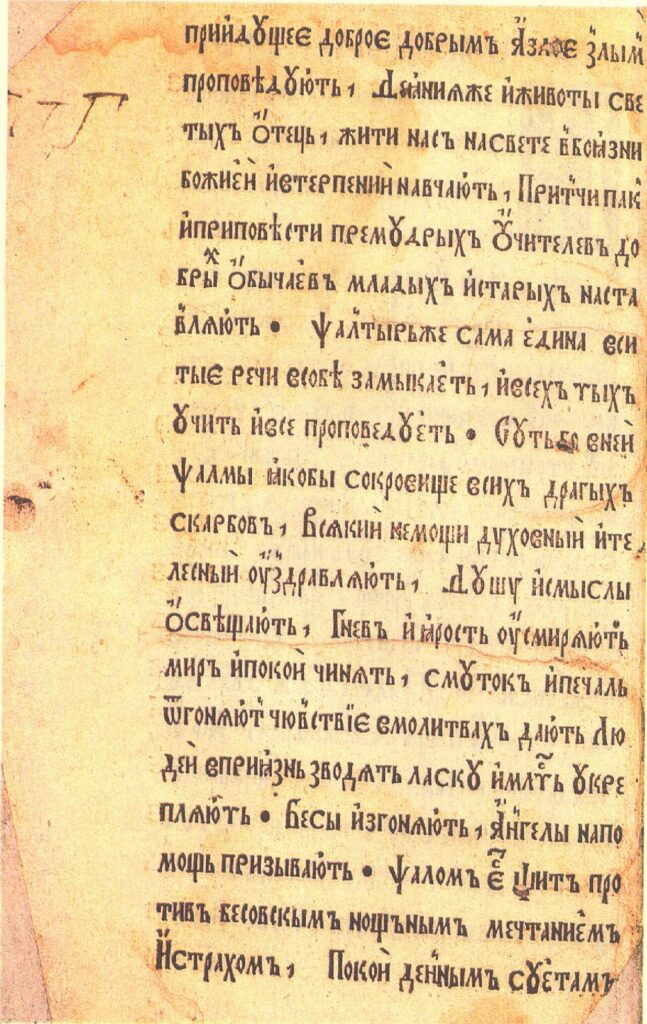 прийдущеѥ доброѥ добрымъ, Ꙗзлоѥ злым
проповѣдують, Дѣꙗнїꙗже иживоты све
тыхъ ѻтець, жити насъ насвете вбоꙗзни
божиеи ивтерпении навчають, Притчи пак
иприповѣсти премꙋдрыхъ Ꙋчителевъ до
брыⷯ ѻбычаевъ младыхъ истарыхъ наста
вляють • Ѱалтырьже сама едина вси
тыѥ речи всобѣ замыкаеть, ивсехъ тыхъ
ꙋчить ивсе проповедꙋеть • Сꙋтьбо вней
ѱалмы ꙗкобы сокровище всихъ драгыхъ
скарбовъ, Всꙗкии немощи дꙋховныи ите
лесныи оуздравлꙗють, Дꙋшꙋ исмыслы
ѻсвѣщають, Гневъ иꙗрость оусмирꙗють
мир ипокои чинꙗть, смꙋтокъ ипечаль
ѿгонꙗют чювствїѥ вмолитвахъ дають Лю
деи вприꙗзнь зводꙗть ласкꙋ имлⷭть ꙋкре
плꙗють • Бесы изгонꙗють, Ꙗнгелы напо
мощь призывають • ѱаломъ еⷭ щит про
тивъ бесовскымъ нощънымъ мечтаниемъ
Истрахомъ, Покои деннымъ сꙋетамъ